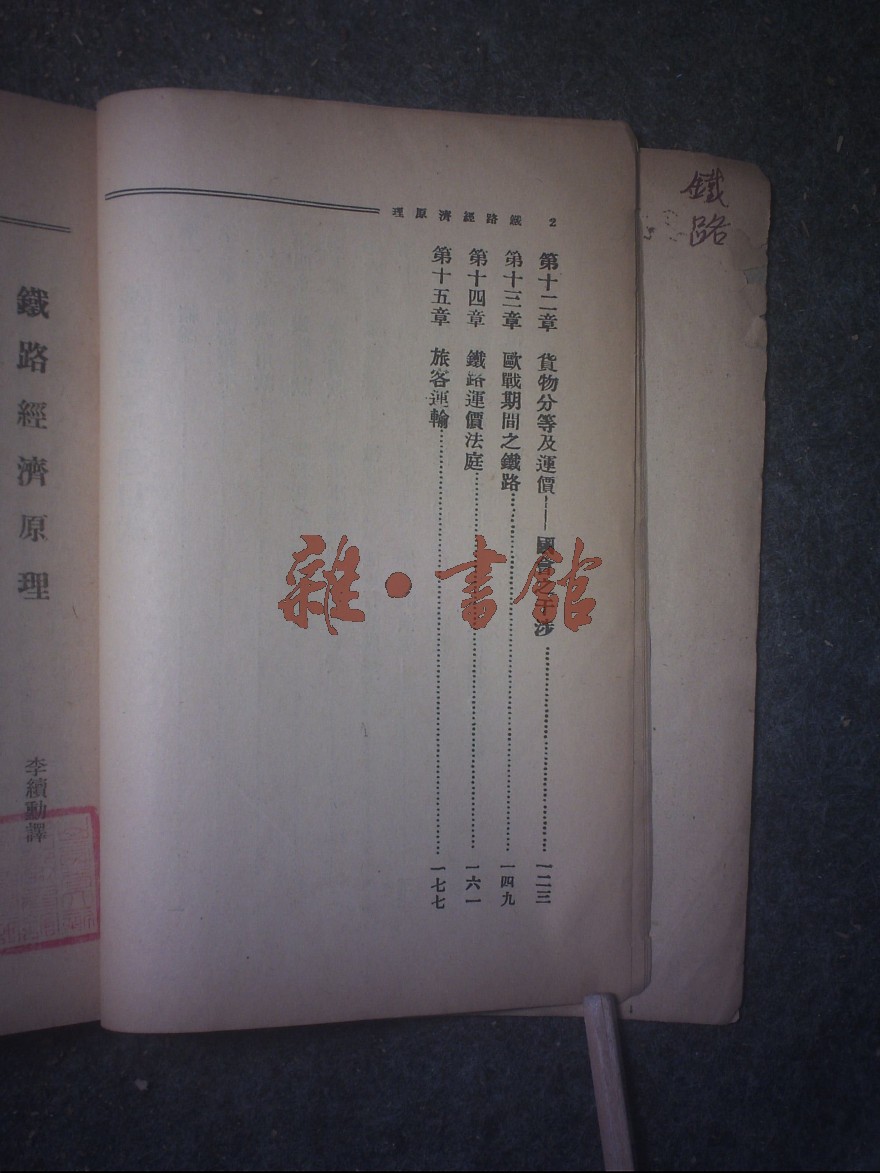 鐵路
2 鐵路經濟原理
第十二章 貨物分等及運價——國會之干涉 一二三
第十三章 歐戰期間之鐵路 一四九
第十四章 鐵路運價法庭 一六一
第十五章 旅客運輸 一七七
雜·書館
鐵路經濟原理
李續勳譯